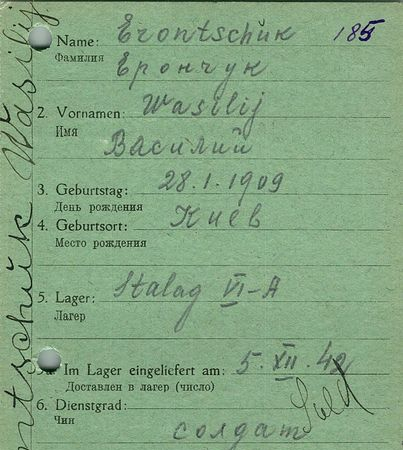 Name: Erontschuk 185
Фамилия Ерончук
2. Vornamen: Wasilij
Имя Василий
3. Geburtstag: 28.1.1909
День рождения
4. Geburtsort: Киев
Место рождения
5. Lager: Stalag VI-A
Лагер
Im Lager eingeliefert am: 5.XII.42
Доставлен в лагер (число)
6. Dienstgrad: Sold
Чин солдат
Wasilij